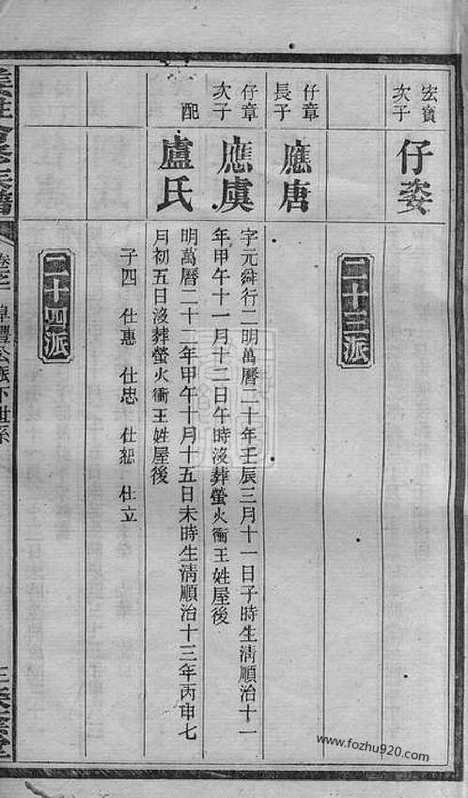 宏寶次子
仔姿
二十三派
仔章長子
應唐
仔章次子
應虞
字元舜行二明萬曆二十年壬辰三月十一日子時生清順治十一
年甲午十一月十二日午時沒葬螢火衝王姓屋後
配
盧氏
明萬曆二十二年甲午十月十五日未時生清順治十三年丙申七
月初五日沒葬螢火衝王姓屋後
子四 仕惠 仕忠 仕恕 仕立
二十四派
公派下世系
www.fozhu920.com